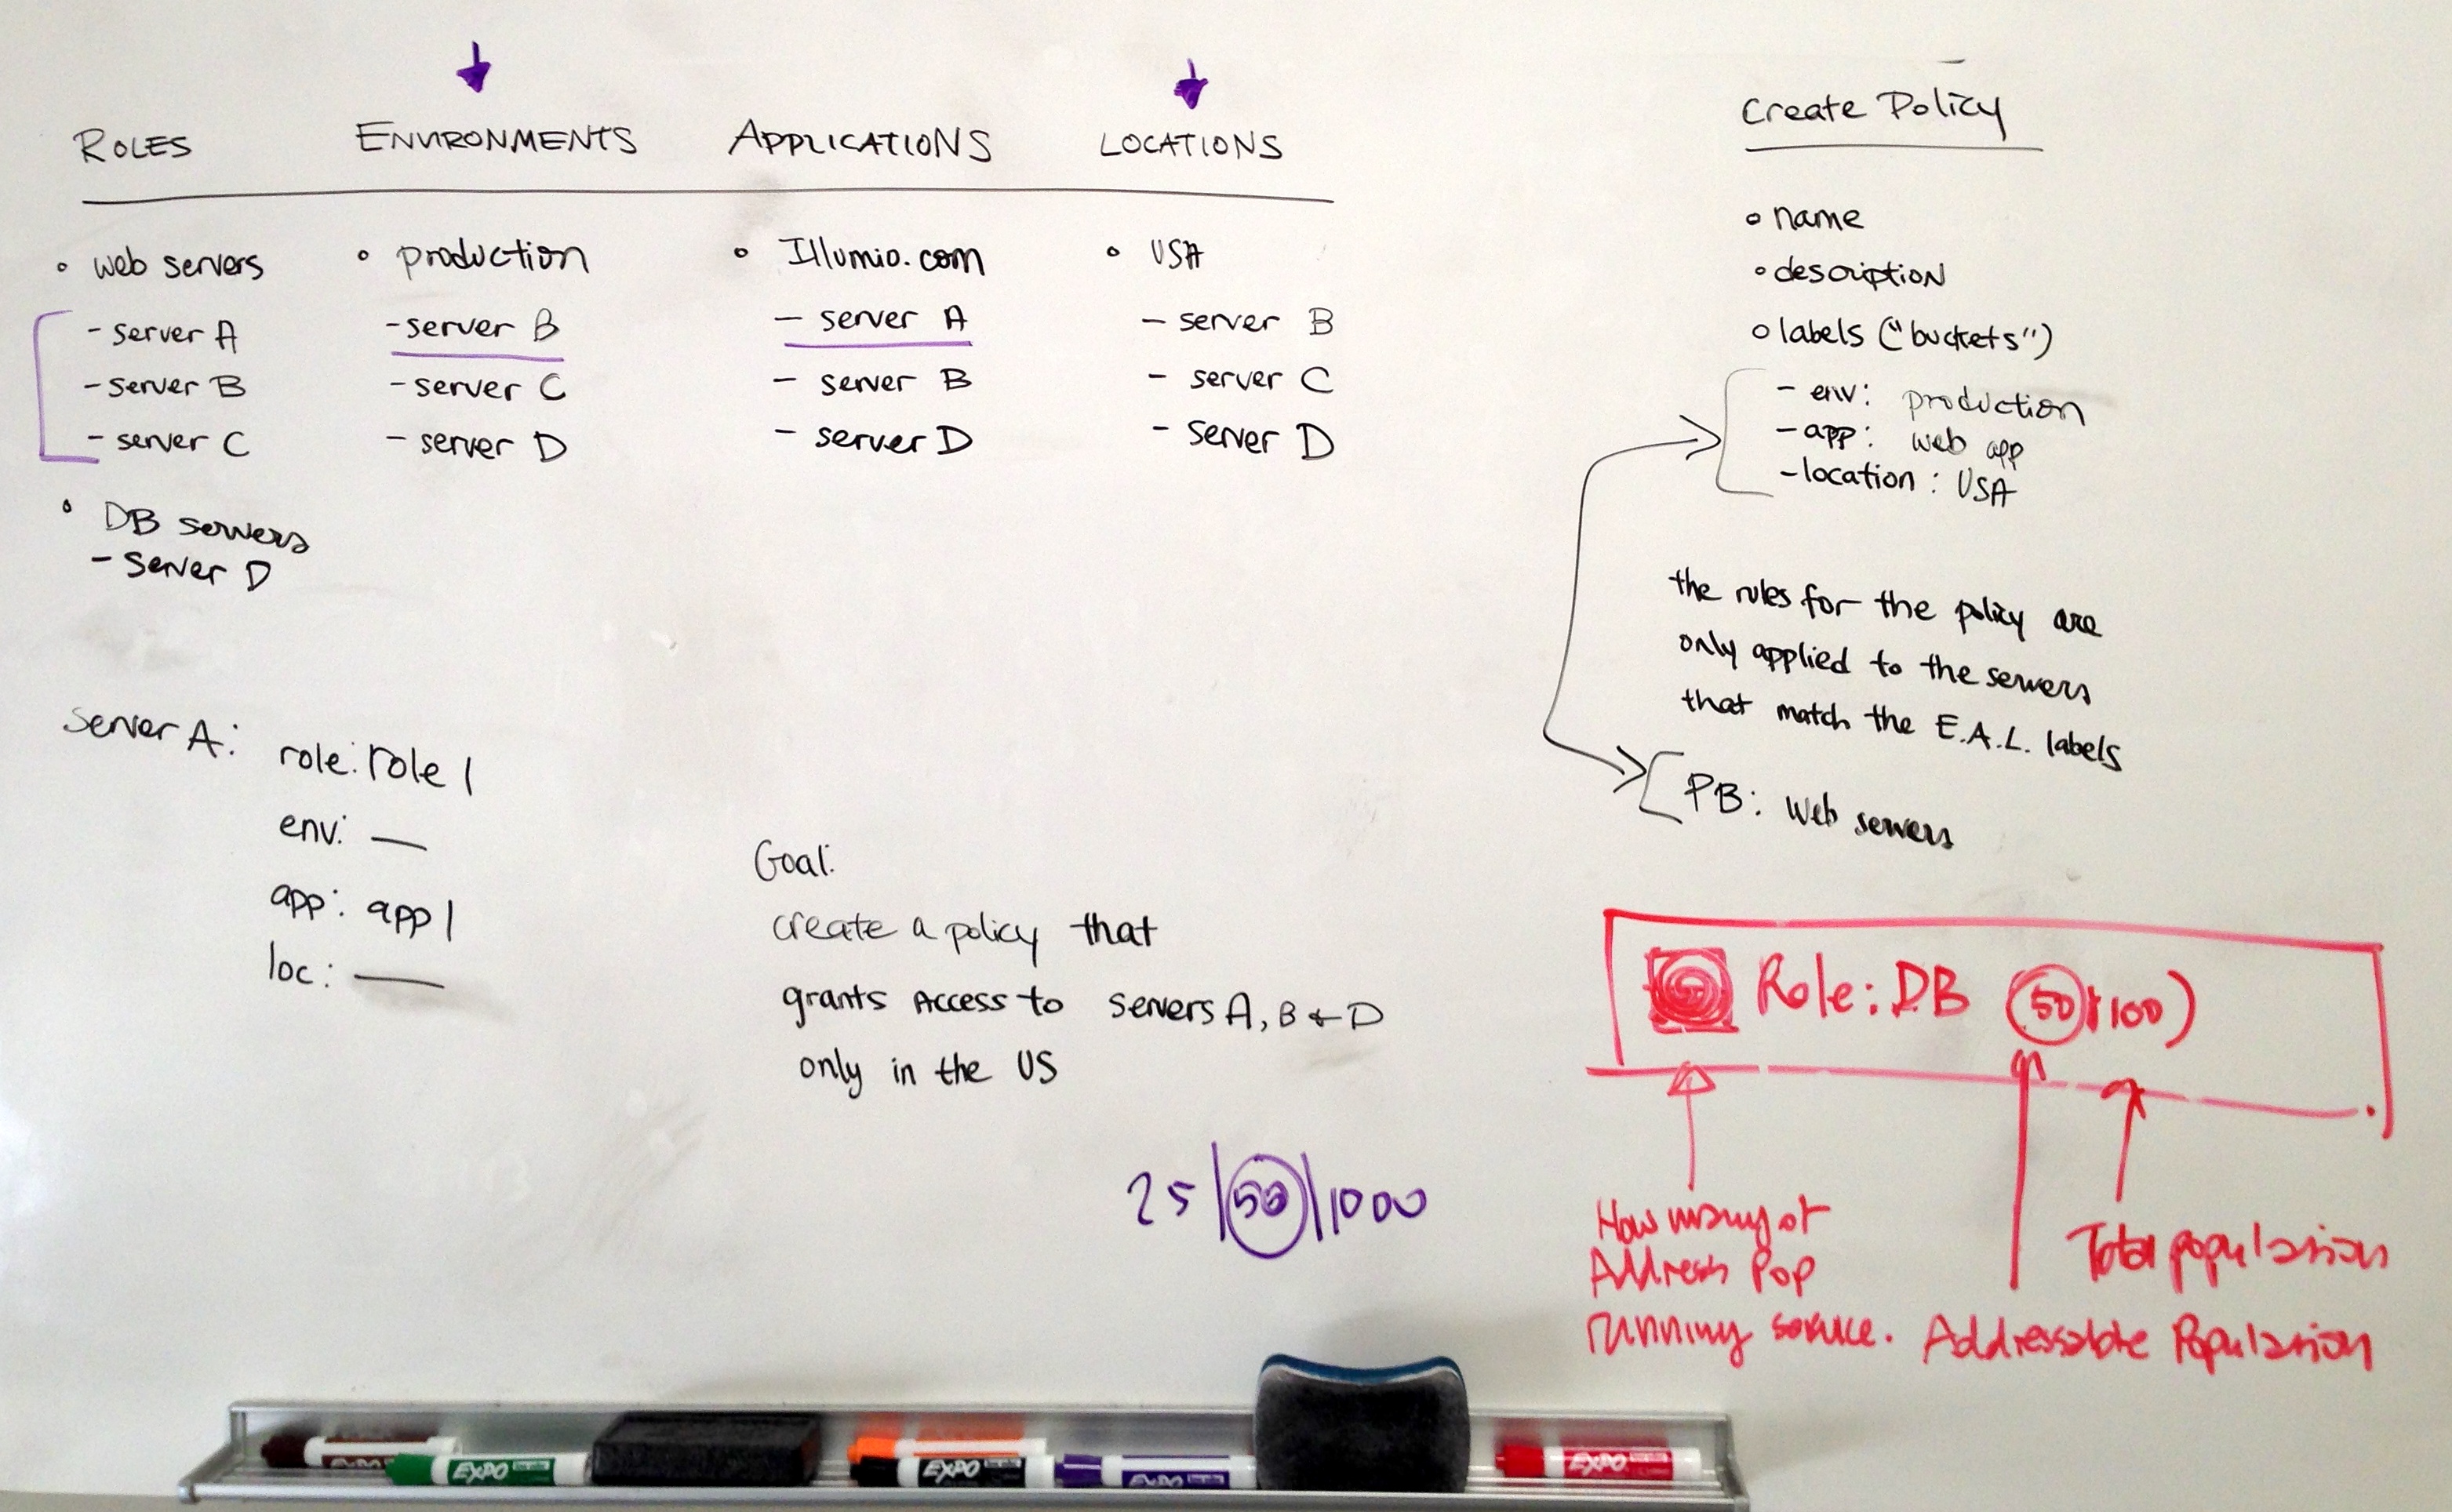 ROLES
• web servers
- server A
- server B
- server C
• DB servers
- server D
ENVIRONMENTS
• production
- server B
- server C
- server D
APPLICATIONS
• Illumio.com
- server A
- server B
- server D
LOCATIONS
• USA
- server B
- server C
- server D
server A:
role: role 1
env: —
app: app 1
loc: —
Goal:
create a policy that
grants access to servers A, B + D
only in the US
25 | 50 | 1000
Create Policy
• name
• description
• labels ("buckets")
- env: production
- app: web app
- location: USA
the rules for the policy are
only applied to the servers
that match the E.A.L. labels
PB: web servers
Role: DB (50 100)
How many of
Address Pop
running service.
Total population
Addressable Population
EXPO
EXPO
EXPO
EXPO